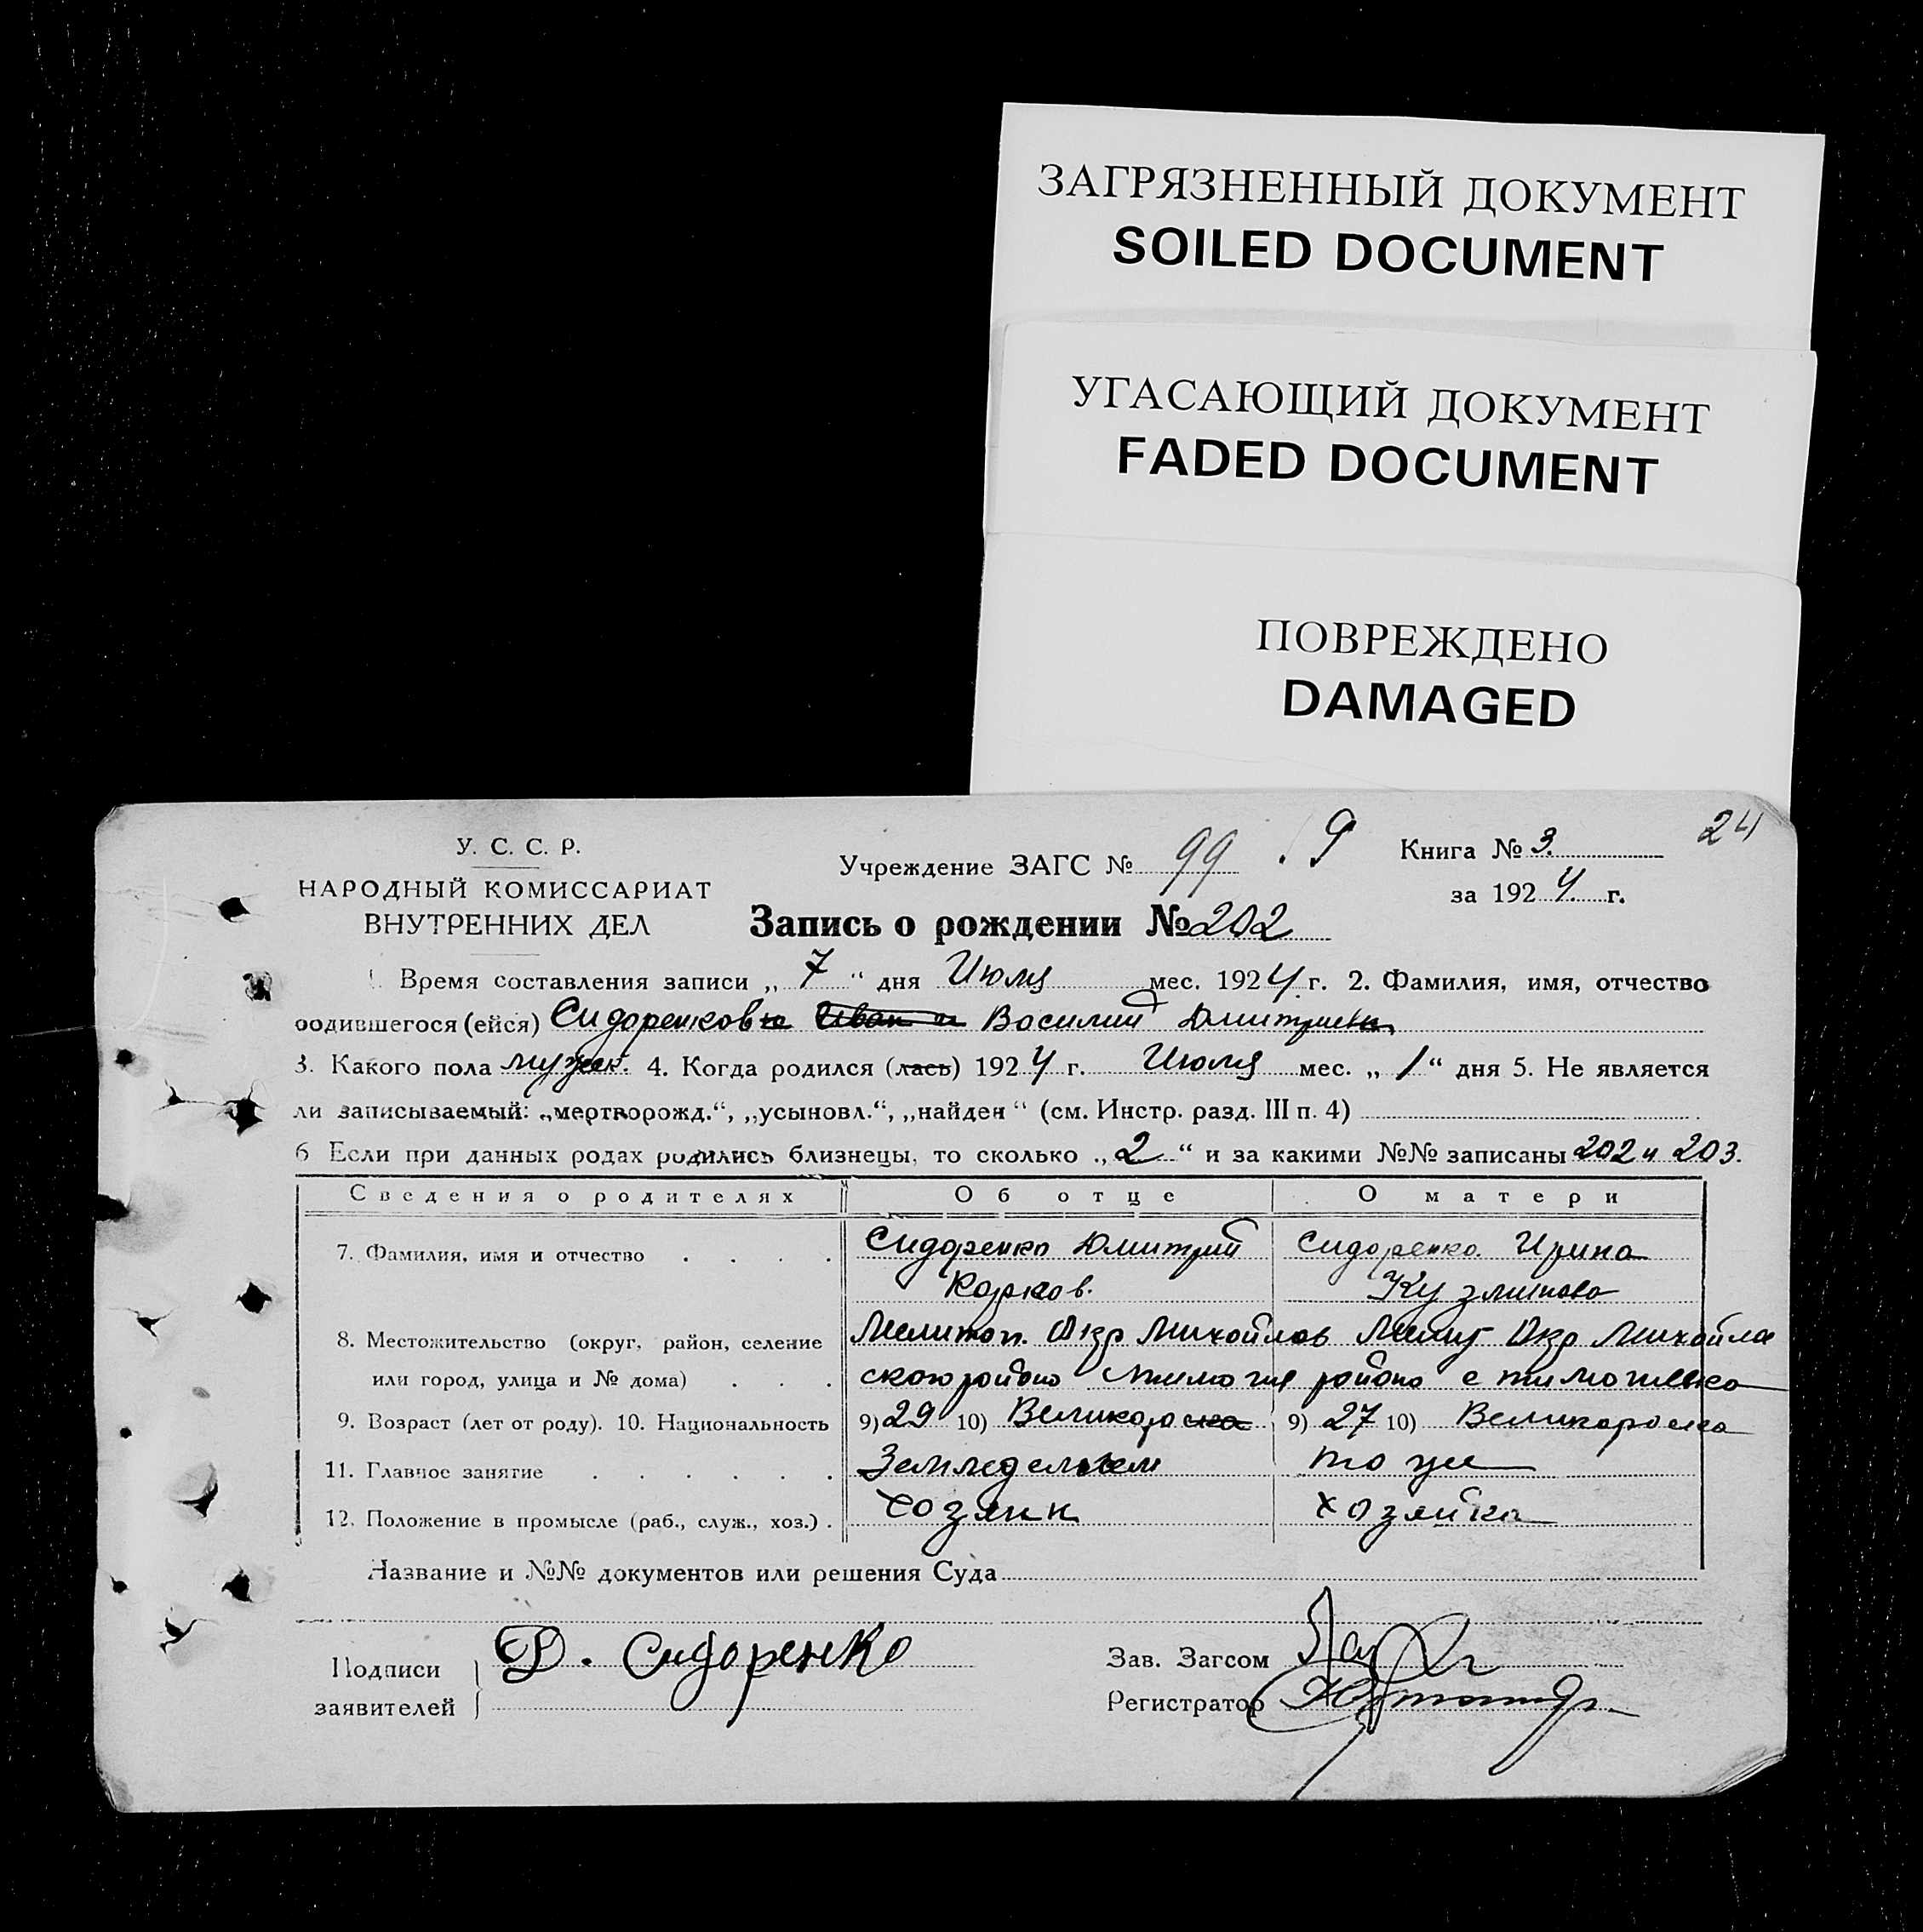 ЗАГРЯЗНЕННЫЙ ДОКУМЕНТ
SOILED DOCUMENT
УГАСАЮЩИЙ ДОКУМЕНТ
FADED DOCUMENT
ПОВРЕЖДЕНО
DAMAGED
24
У. С. С. Р.
НАРОДНЫЙ КОМИССАРИАТ
ВНУТРЕННИХ ДЕЛ
Учреждение ЗАГС № 99 . 9
Книга № 3.
за 1924 г.
Запись о рождении № 202
1. Время составления записи „ 7 “ дня Июля мес. 1924 г. 2. Фамилия, имя, отчество
родившегося (ейся) Сидоренков Иван Василий Дмитриев
3. Какого пола мужск. 4. Когда родился (лась) 1924 г. Июля мес. „ 1 “ дня 5. Не является
ли записываемый: „мертворожд.“, „усыновл.“, „найден“ (см. Инстр. разд. III п. 4)
6 Если при данных родах родились близнецы, то сколько „ 2 “ и за какими №№ записаны 202 и 203.
Сведения о родителях Об отце О матери
7. Фамилия, имя и отчество . . . . Сидоренко Дмитрий Сидоренко Ирина
Карпов. Кузминова
8. Местожительство (округ, район, селение Мелитоп. Окр Михайлов Мелит Окр Михайлов
или город, улица и № дома) . . . ского района района с Тимошевка
9. Возраст (лет от роду). 10. Национальность 9) 29 10) Великорос 9) 27 10) Великороска
11. Главное занятие . . . . . . Земледелием то же
12. Положение в промысле (раб., служ., хоз.) . Хозяин хозяйка
Название и №№ документов или решения Суда
Подписи
заявителей
Д. Сидоренко
Зав. Загсом
Регистратор